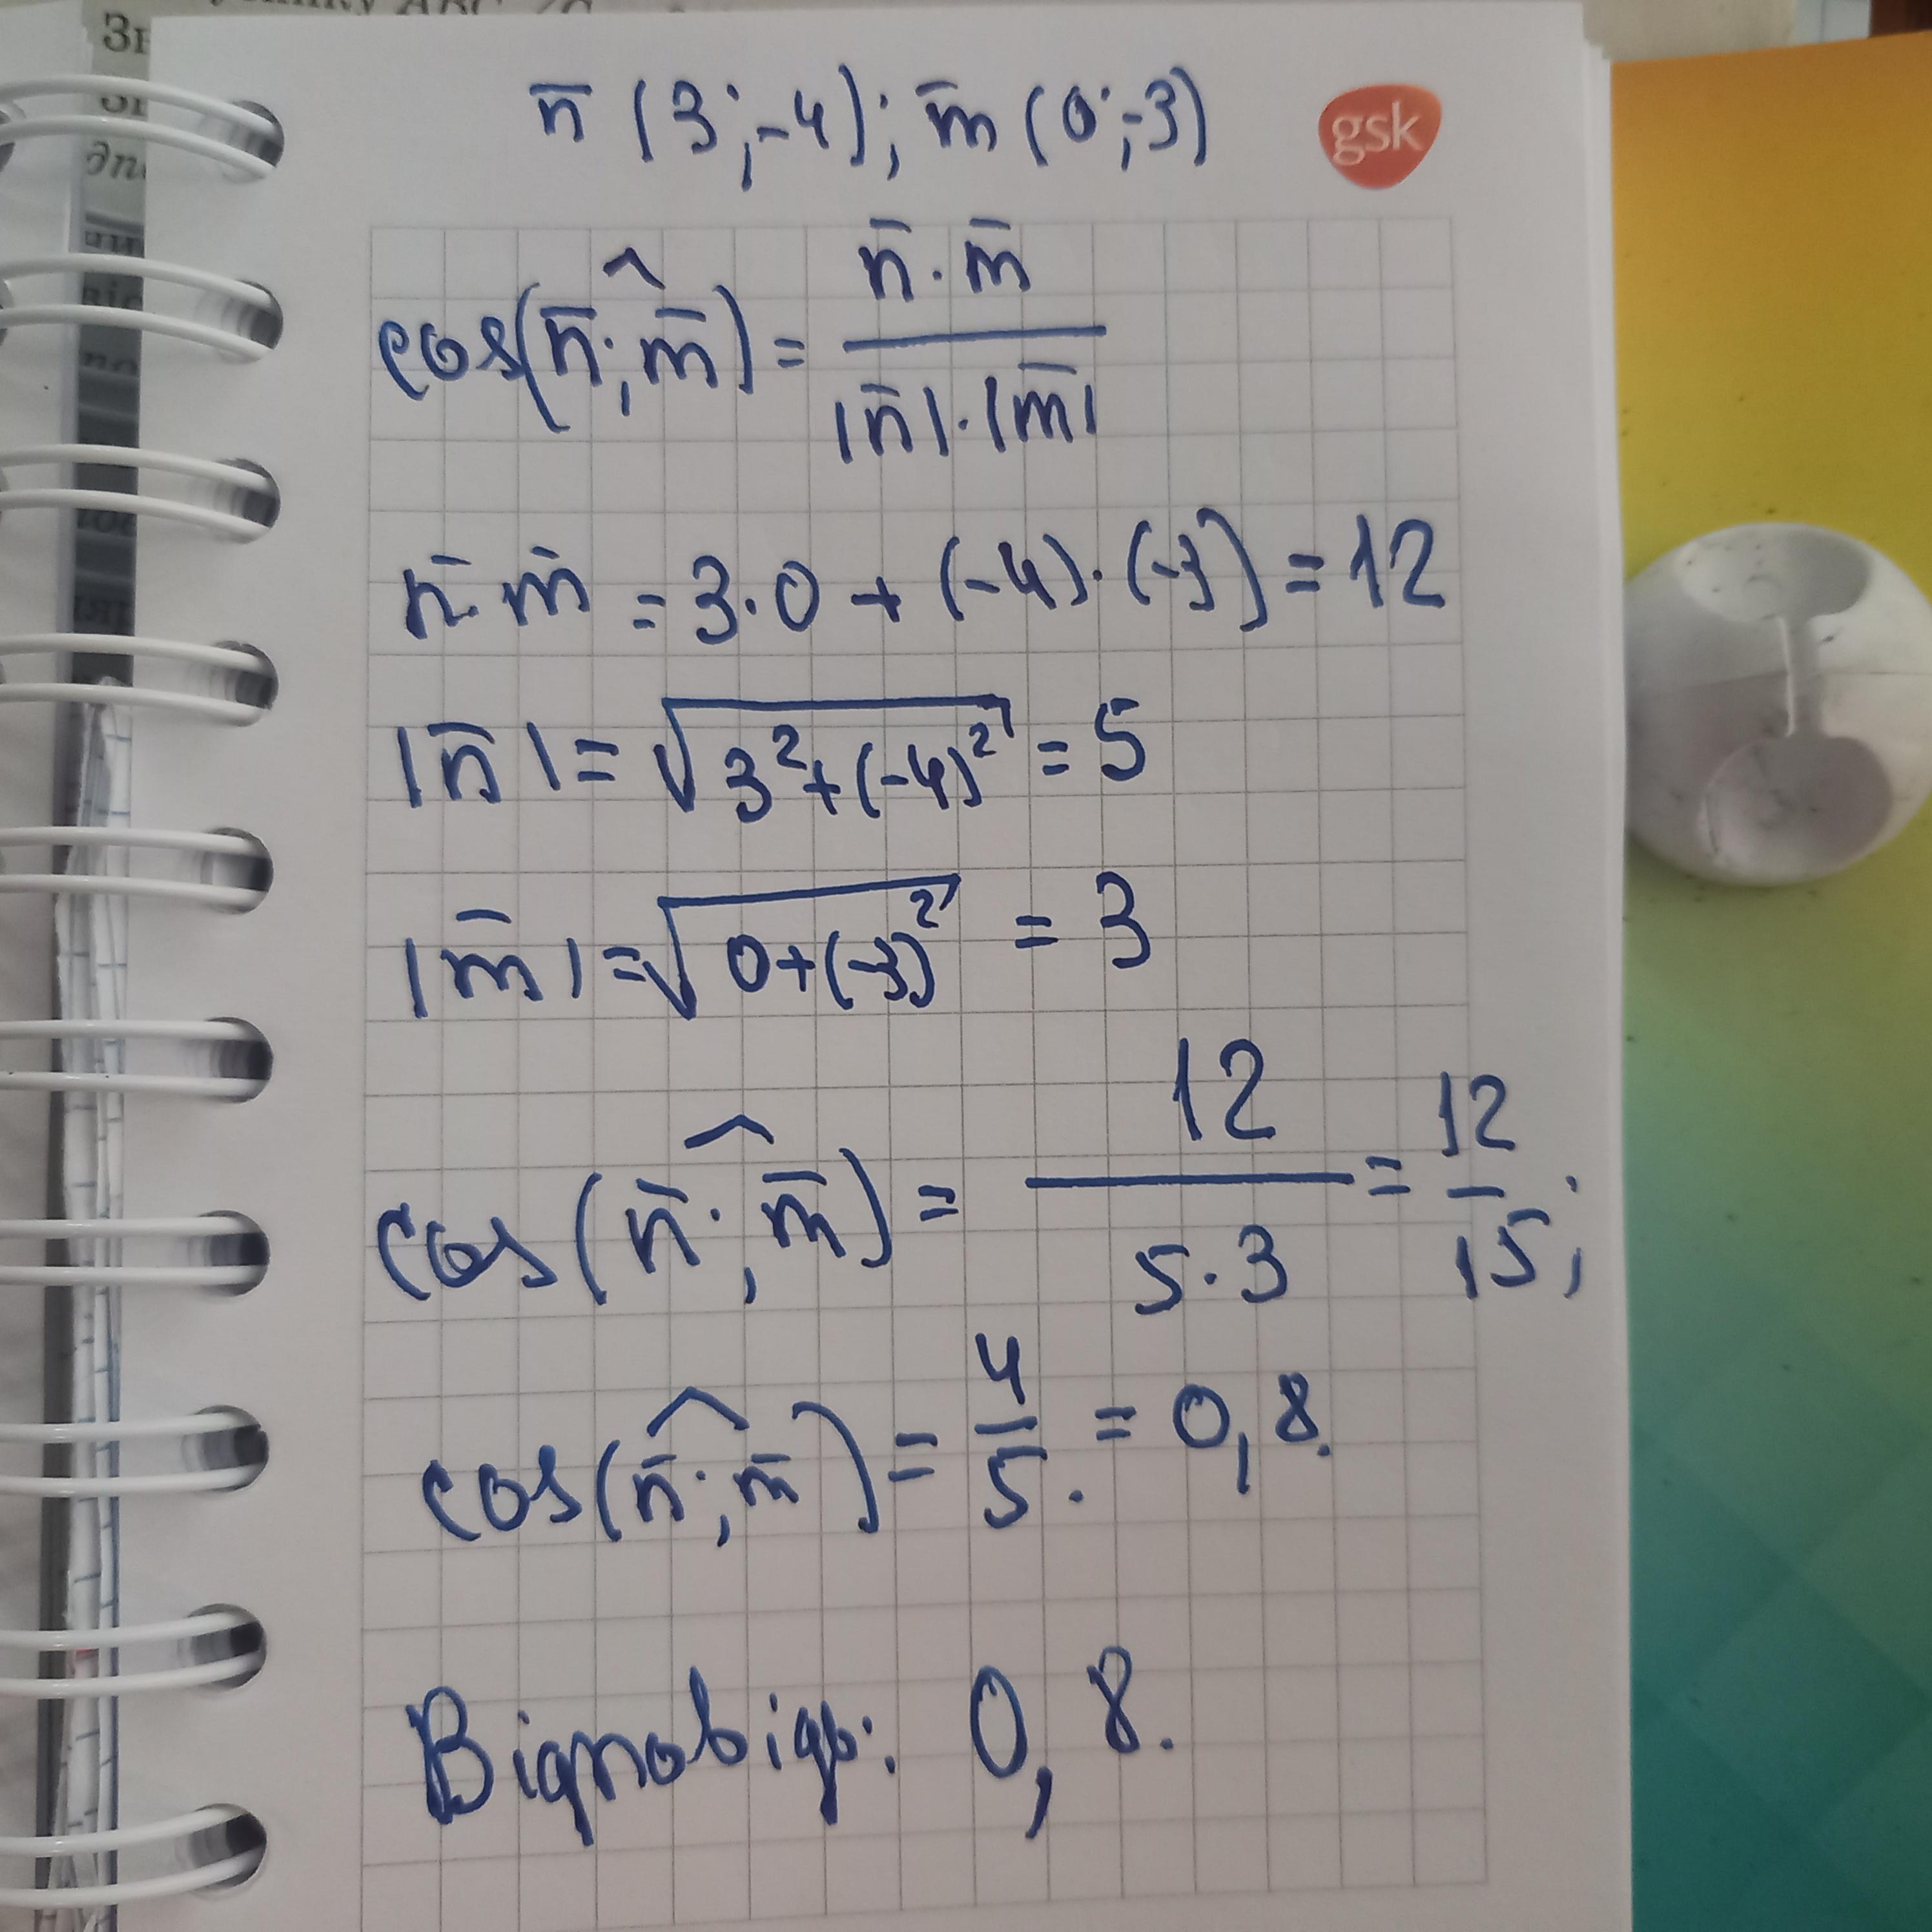 n̄ (3;-4); m̄ (0;-3)
gsk
cos(n̄;^m̄) = n̄·m̄ / |n̄|·|m̄|
n̄·m̄ = 3·0 + (-4)·(-3) = 12
|n̄| = √(3²+(-4)²) = 5
|m̄| = √(0+(-3)²) = 3
cos(n̄;^m̄) = 12 / 5·3 = 12/15;
cos(n̄;^m̄) = 4/5. = 0,8.
Відповідь: 0,8.